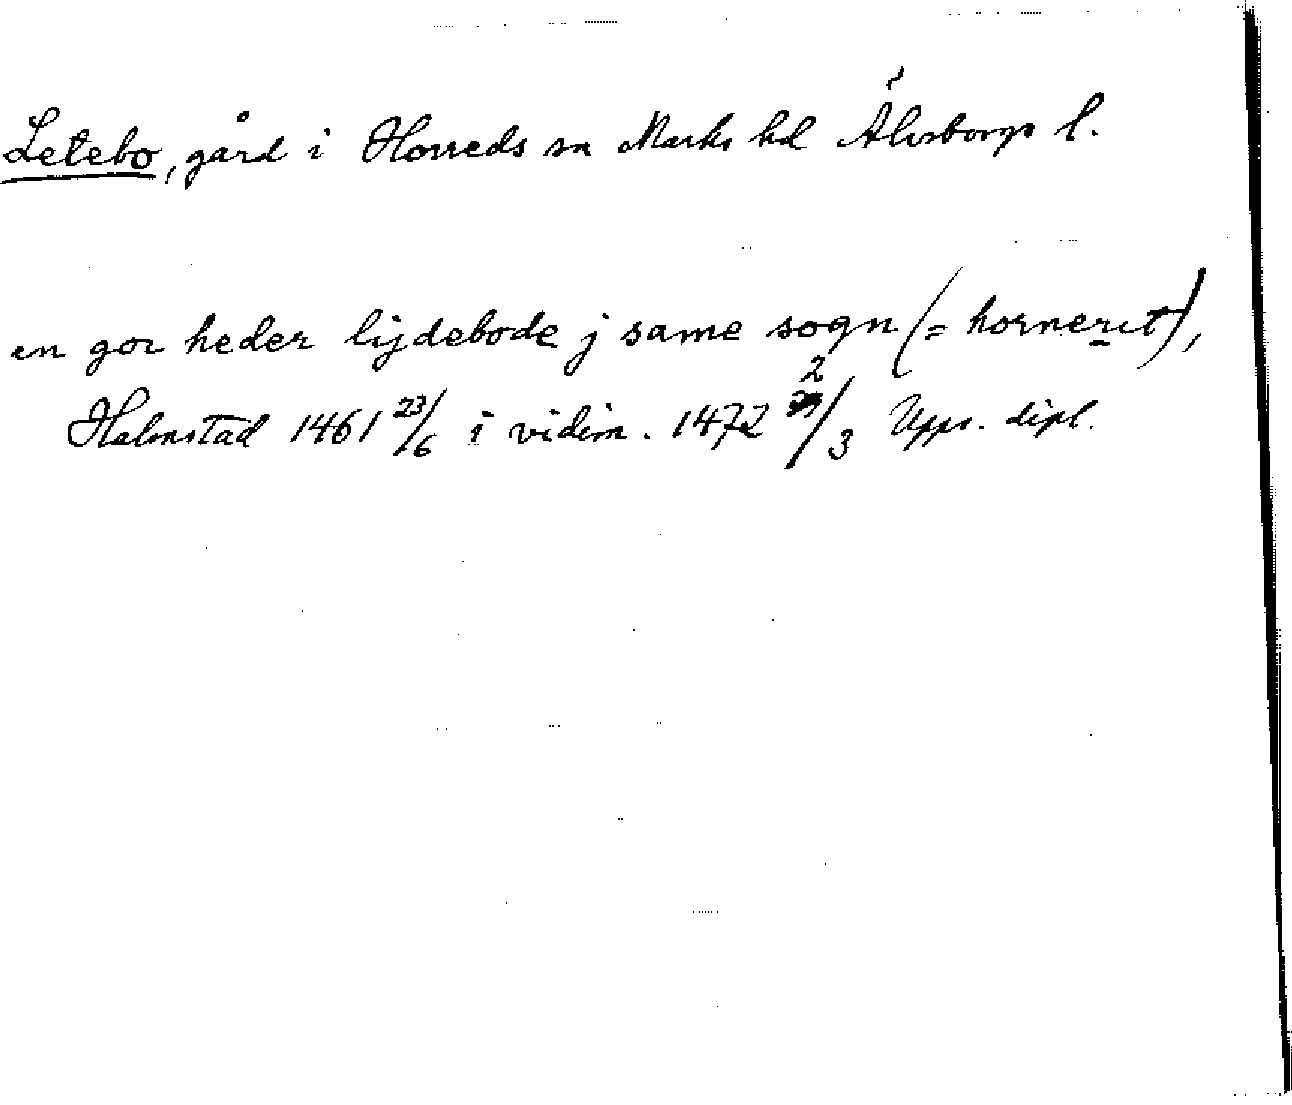 Letebo, gård i Horreds sn Marks hd Älvsborgs l.
en gor heder lijdebode j same sogn (= horneret),
Halmstad 1461 23/6 i vidim. 1472 2/3 Upps. dipl.